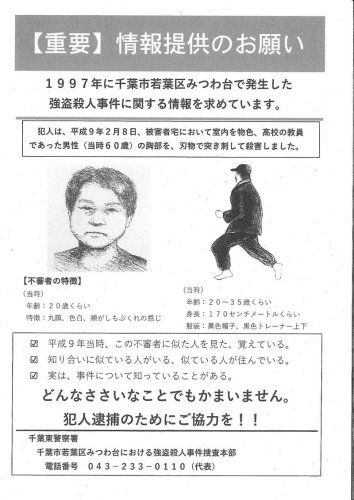 【重要】情報提供のお願い
1997年に千葉市若葉区みつわ台で発生した
強盗殺人事件に関する情報を求めています。
犯人は、平成9年2月8日、被害者宅において室内を物色、高校の教員
であった男性(当時60歳)の胸部を、刃物で突き刺して殺害しました。
【不審者の特徴】
(当時)
年齢：20歳くらい
特徴：丸顔、色白、頬がしもぶくれの感じ
(当時)
年齢：20～35歳くらい
身長：170センチメートルくらい
服装：黒色帽子、黒色トレーナー上下
☑ 平成9年当時、この不審者に似た人を見た、覚えている。
☑ 知り合いに似ている人がいる、似ている人が住んでいる。
☑ 実は、事件について知っていることがある。
どんなささいなことでもかまいません。
犯人逮捕のためにご協力を！！
千葉東警察署
千葉市若葉区みつわ台における強盗殺人事件捜査本部
電話番号 043-233-0110(代表)